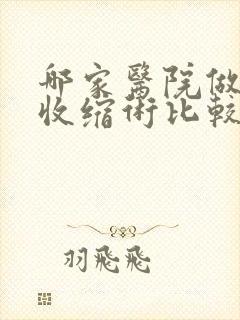 哪家醫院做
收缩術比較
羽飛飛